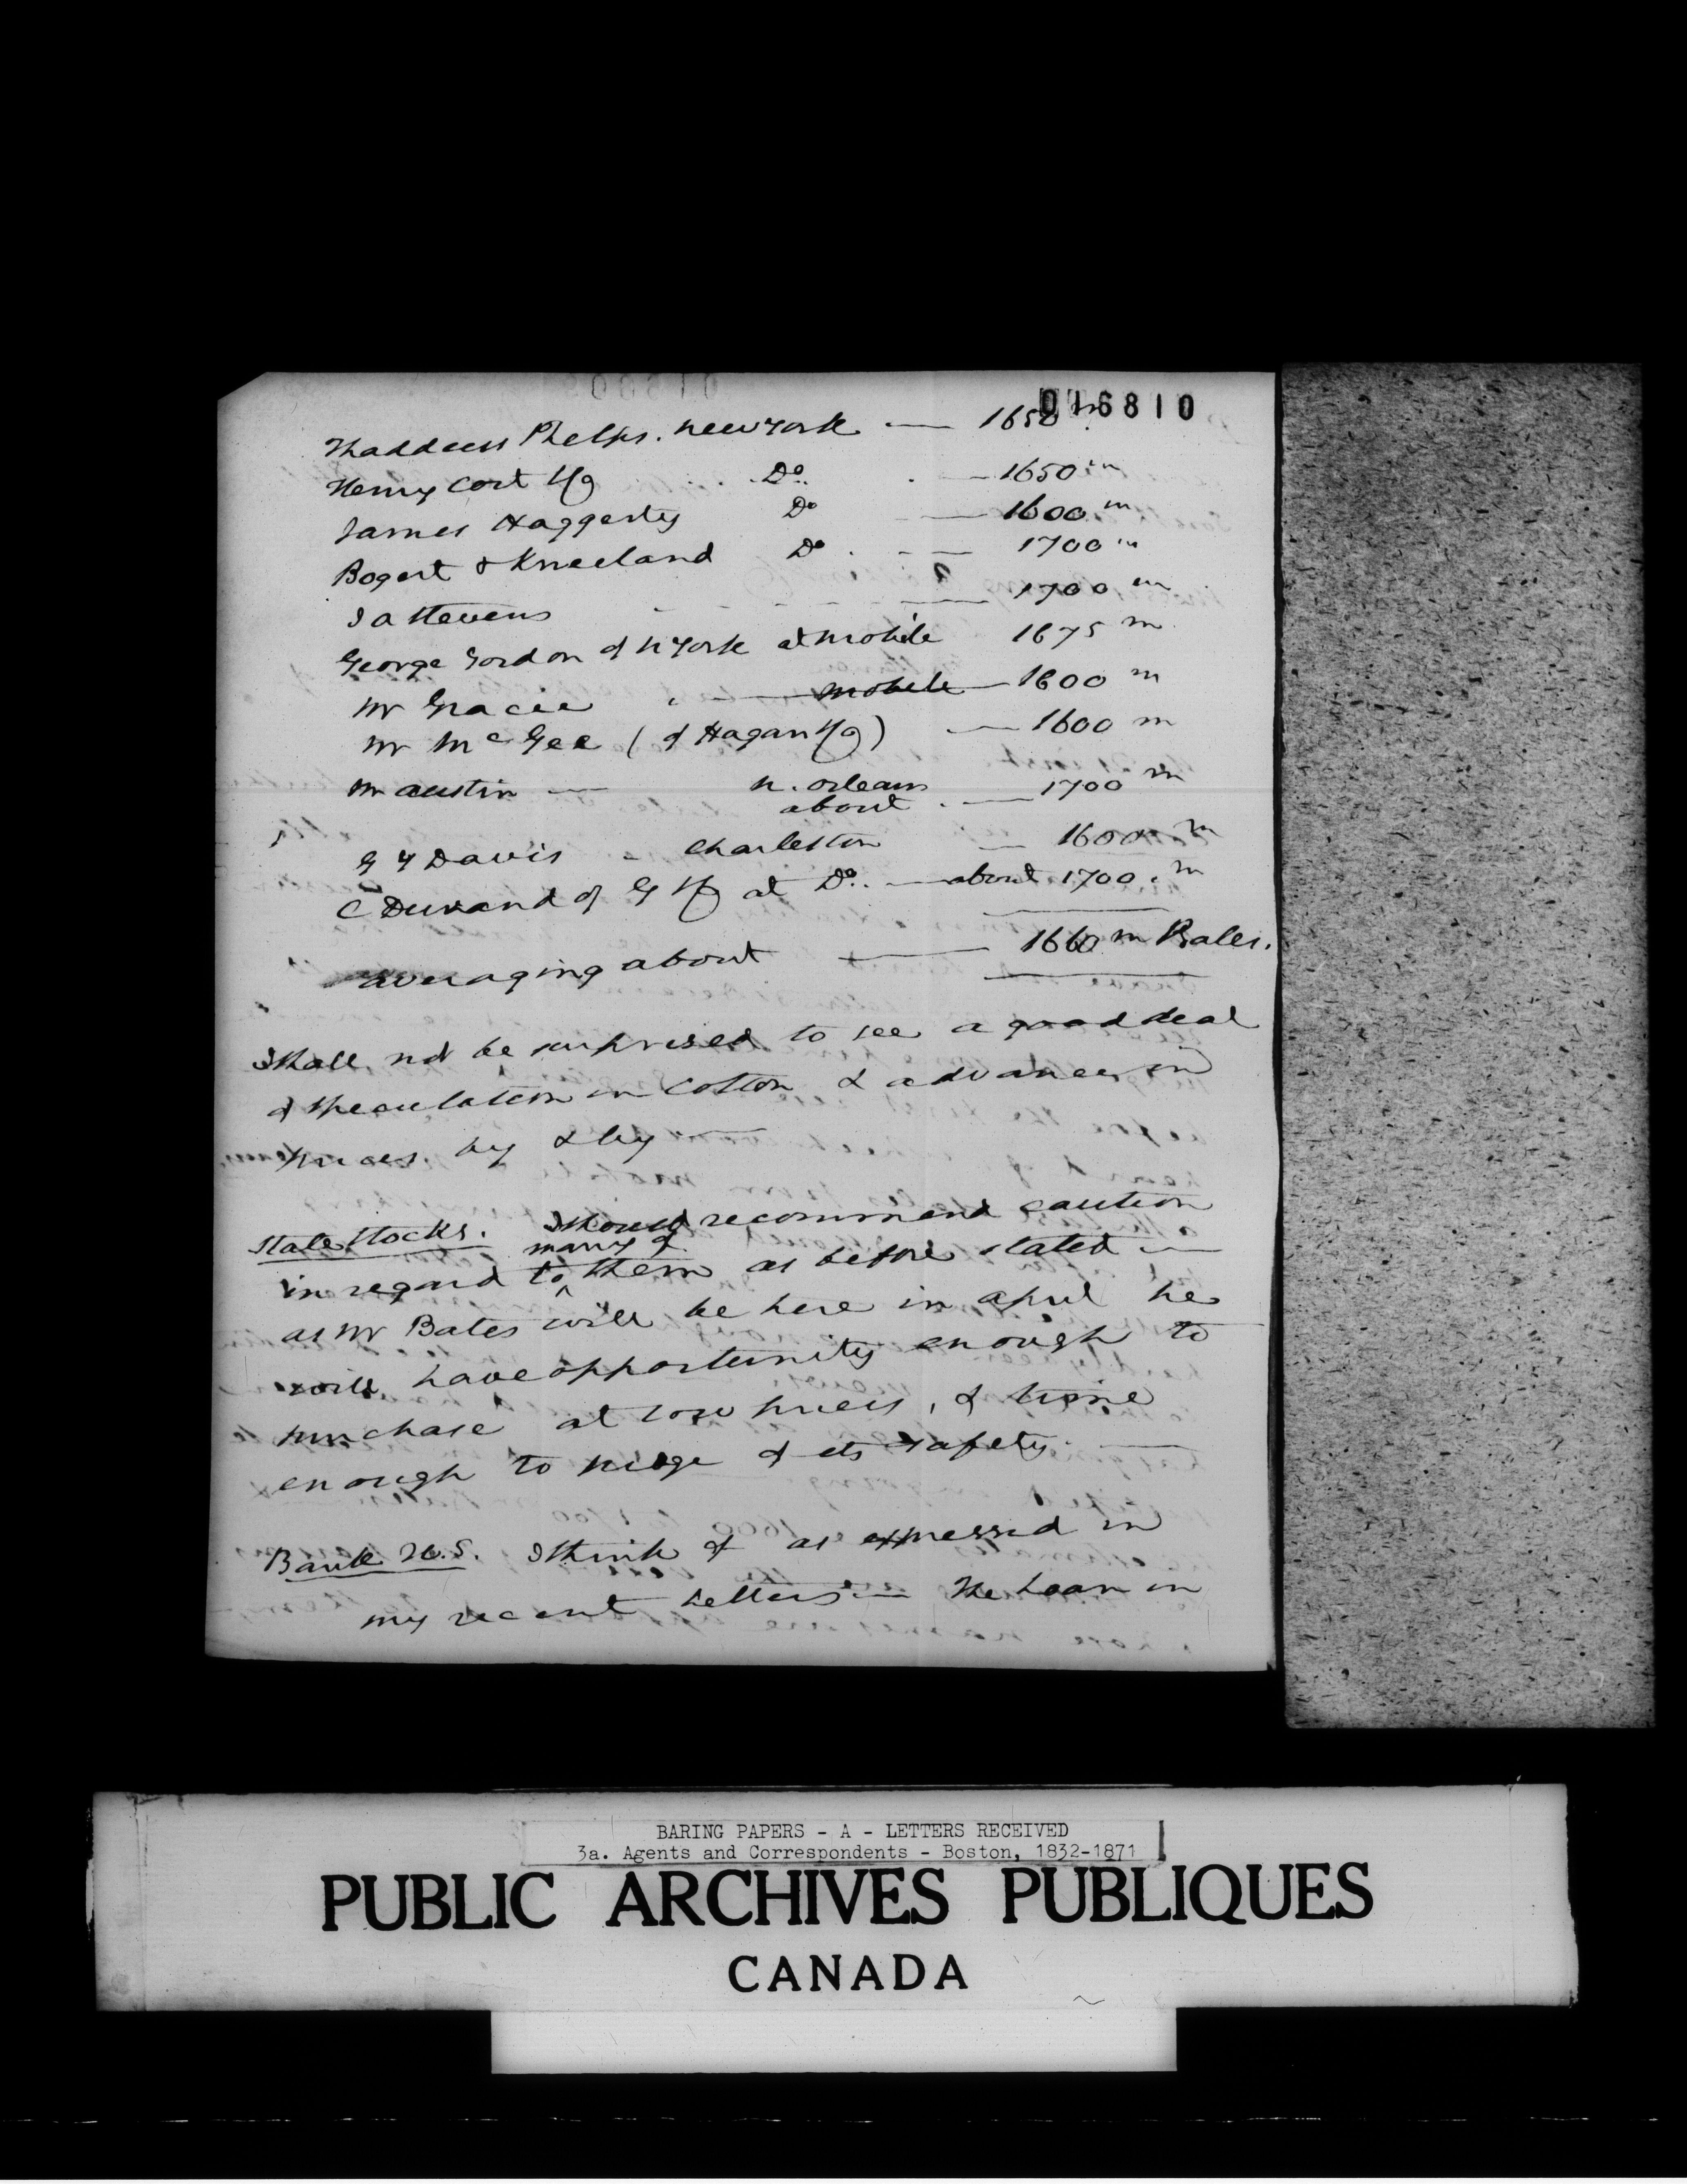 016810
Thaddeus Phelps. New York — 1650 m
Henry Coit & Co Do. — 1650 m
James Haggerty Do — 1600 m
Bogert & Kneeland Do — 1700 m
J A Stevens — 1700 m
George Gordon of N York at Mobile 1675 m
Mr Gracie — Mobile — 1600 m
Mr McGee (of Hagan & Co) — 1600 m
Mr Austin — N. Orleans 1700 m
about
G Y Davis - Charleston — 1600 m
C Durand of G & Co at Do. — about 1700 m
averaging about — 1660 m Bales.
Shall not be surprised to see a good deal
of speculation in Cotton & advances in
prices by & by —
State Stocks. I should recommend caution
many of
in regard to ^ them as before stated —
as Mr Bates will be here in April he
will have opportunity enough to
purchase at low prices, & time
enough to judge of its safety. —
Bank U.S. I think of as expressed in
my recent letters — The Loan in
BARING PAPERS - A - LETTERS RECEIVED
3a. Agents and Correspondents - Boston, 1832-1871
PUBLIC ARCHIVES PUBLIQUES
CANADA